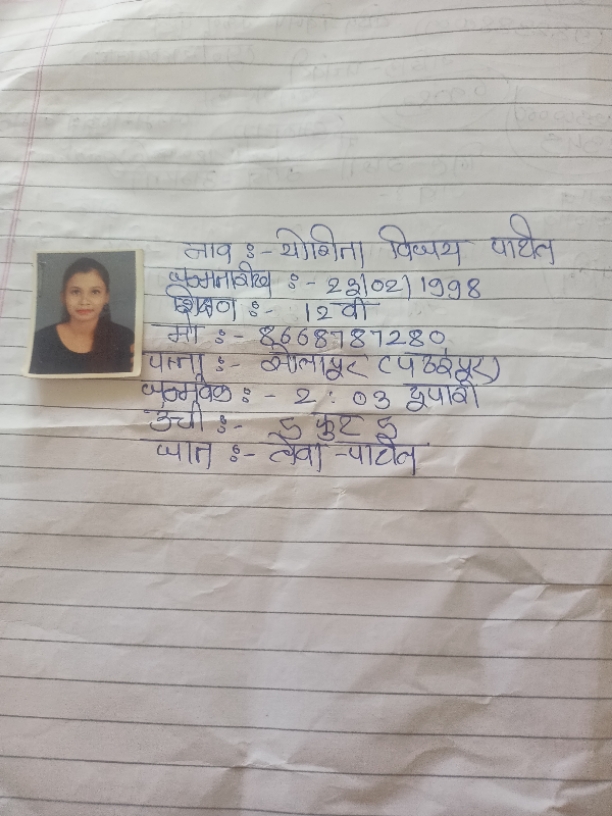 नाव :- योगिता विजय पाटील
जन्मतारीख :- 23/02/1998
शिक्षण :- 12 वी
मो :- 8668787280
पत्ता :- सोलापूर (पंढरपूर)
जन्मवेळ :- 2 : 03 दुपारी
उंची :- 5 फुट 5
जात :- लेवा -पाटील